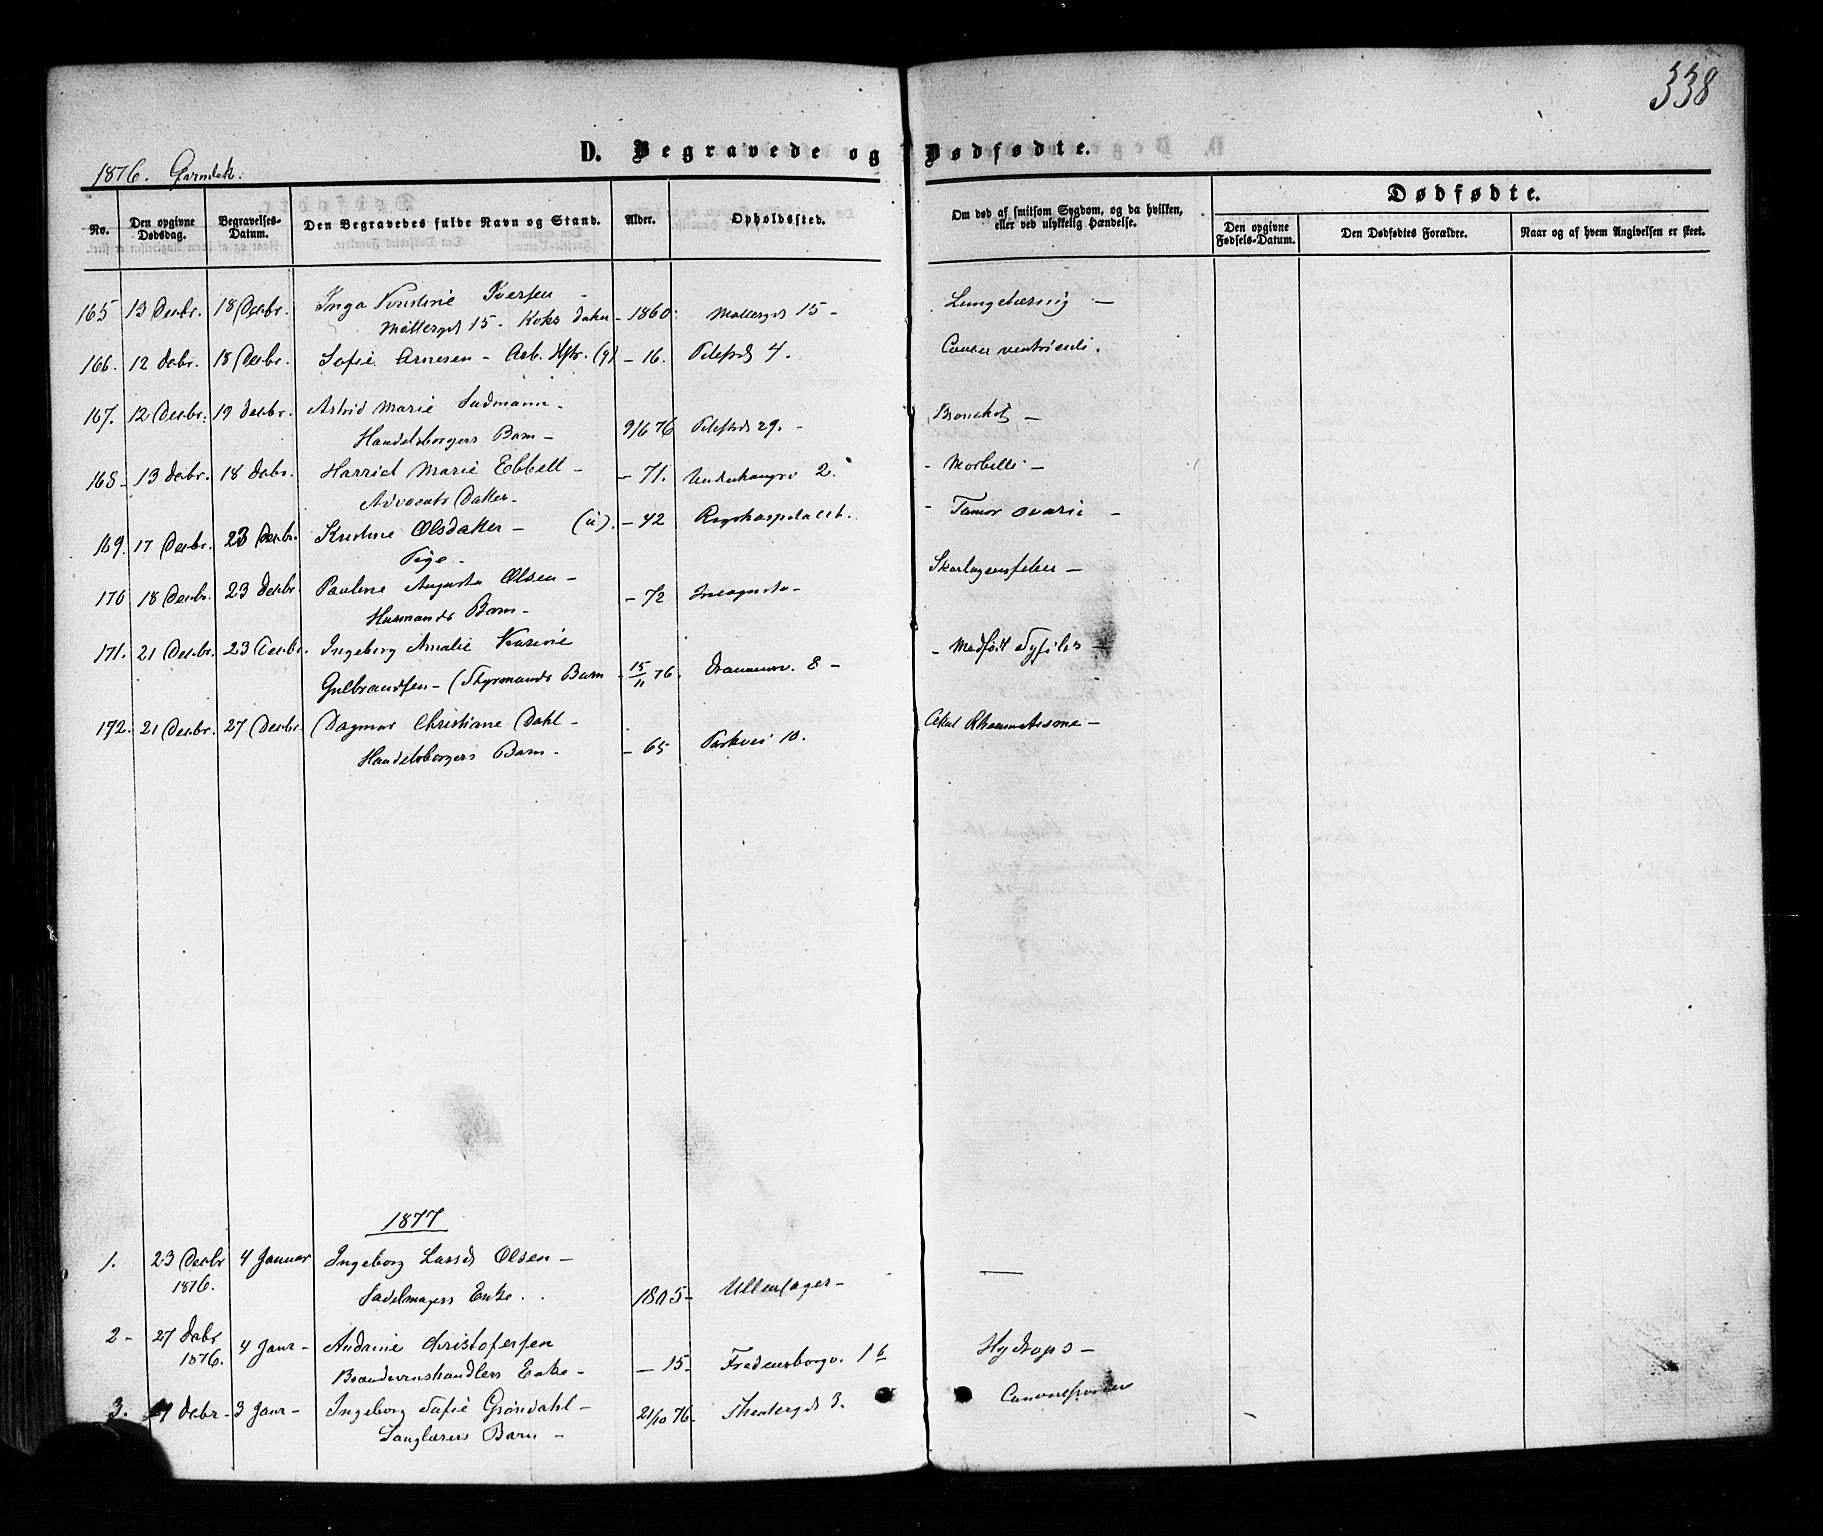 338
D. Begravede og Dødfødte.
1876. Qvindek:
No.
Den opgivne Dødsdag.
Begravelses-Datum.
Den Begravedes fulde Navn og Stand.
Alder.
Opholdssted.
Om død af smitsom Sygdom, og da hvilken, eller ved ulykkelig Hændelse.
Dødfødte.
Den opgivne Fødsels-Datum.
Den Dødfødtes Forældre.
Naar og af hvem Angivelsen er skeet.
165 13 Decbr. 18 Decbr. Inga Kristine Iversen –
Møllergd 15. Koks Datter – 1860. Møllergd 15 – Lungetæring –
166. 12 Decbr. 18 Decbr. Sofie Arnesen – Arb. Hstr. (g) – 16. Pilestrd 4. Cancer ventriculi.
167. 12 Decbr. 19 Decbr. Astrid Marie –
Handelsborgers Barn – 9/6 76 Pilestrds 29. – Bronchit –
168 – 13 Decbr. 18 Decbr. Harriet Marie Ebbell –
Advocats Datter – – 71. 2. – Morbilli –
169. 17 Decbr. 23 Decbr. Kristine Olsdatter – (u). – 42 Rigshospitalet. – Tumor ovarii –
Pige –
170 18 Decbr. 23 Decbr. Pauline Augusta Olsen –
Husmands Barn – – 72 Incognito – Skarlagensfeber –
171. 21 Decbr. 23 Decbr. Ingeborg Amalie Karine
Gulbrandsen – (Styrmands Barn – 15/11 76. Drammenv. 8 – – Medfødt Syfilis –
172. 21 Decbr. 27 Decbr. Dagmar Christiane Dahl –
Handelsborgers Barn – – 65 Parkvei 10. Akut Rheumatisme –
1877
1. 23 Decbr 1876. 4 Januar Ingeborg Olsen –
Sadelmagers Enke. 1805 – Ullensager – —
2 – 27 Decbr 1876. 4 Janr – Andrine Christofersen
Brændevinshandlers Enke – – 15 – Fredensborgv. 1 b Hydrops –
3. Decbr – 3 Janr – Ingeborg Sofie Grøndahl –
Sanglærers Barn – 21/10 76 – Theatergd 3.